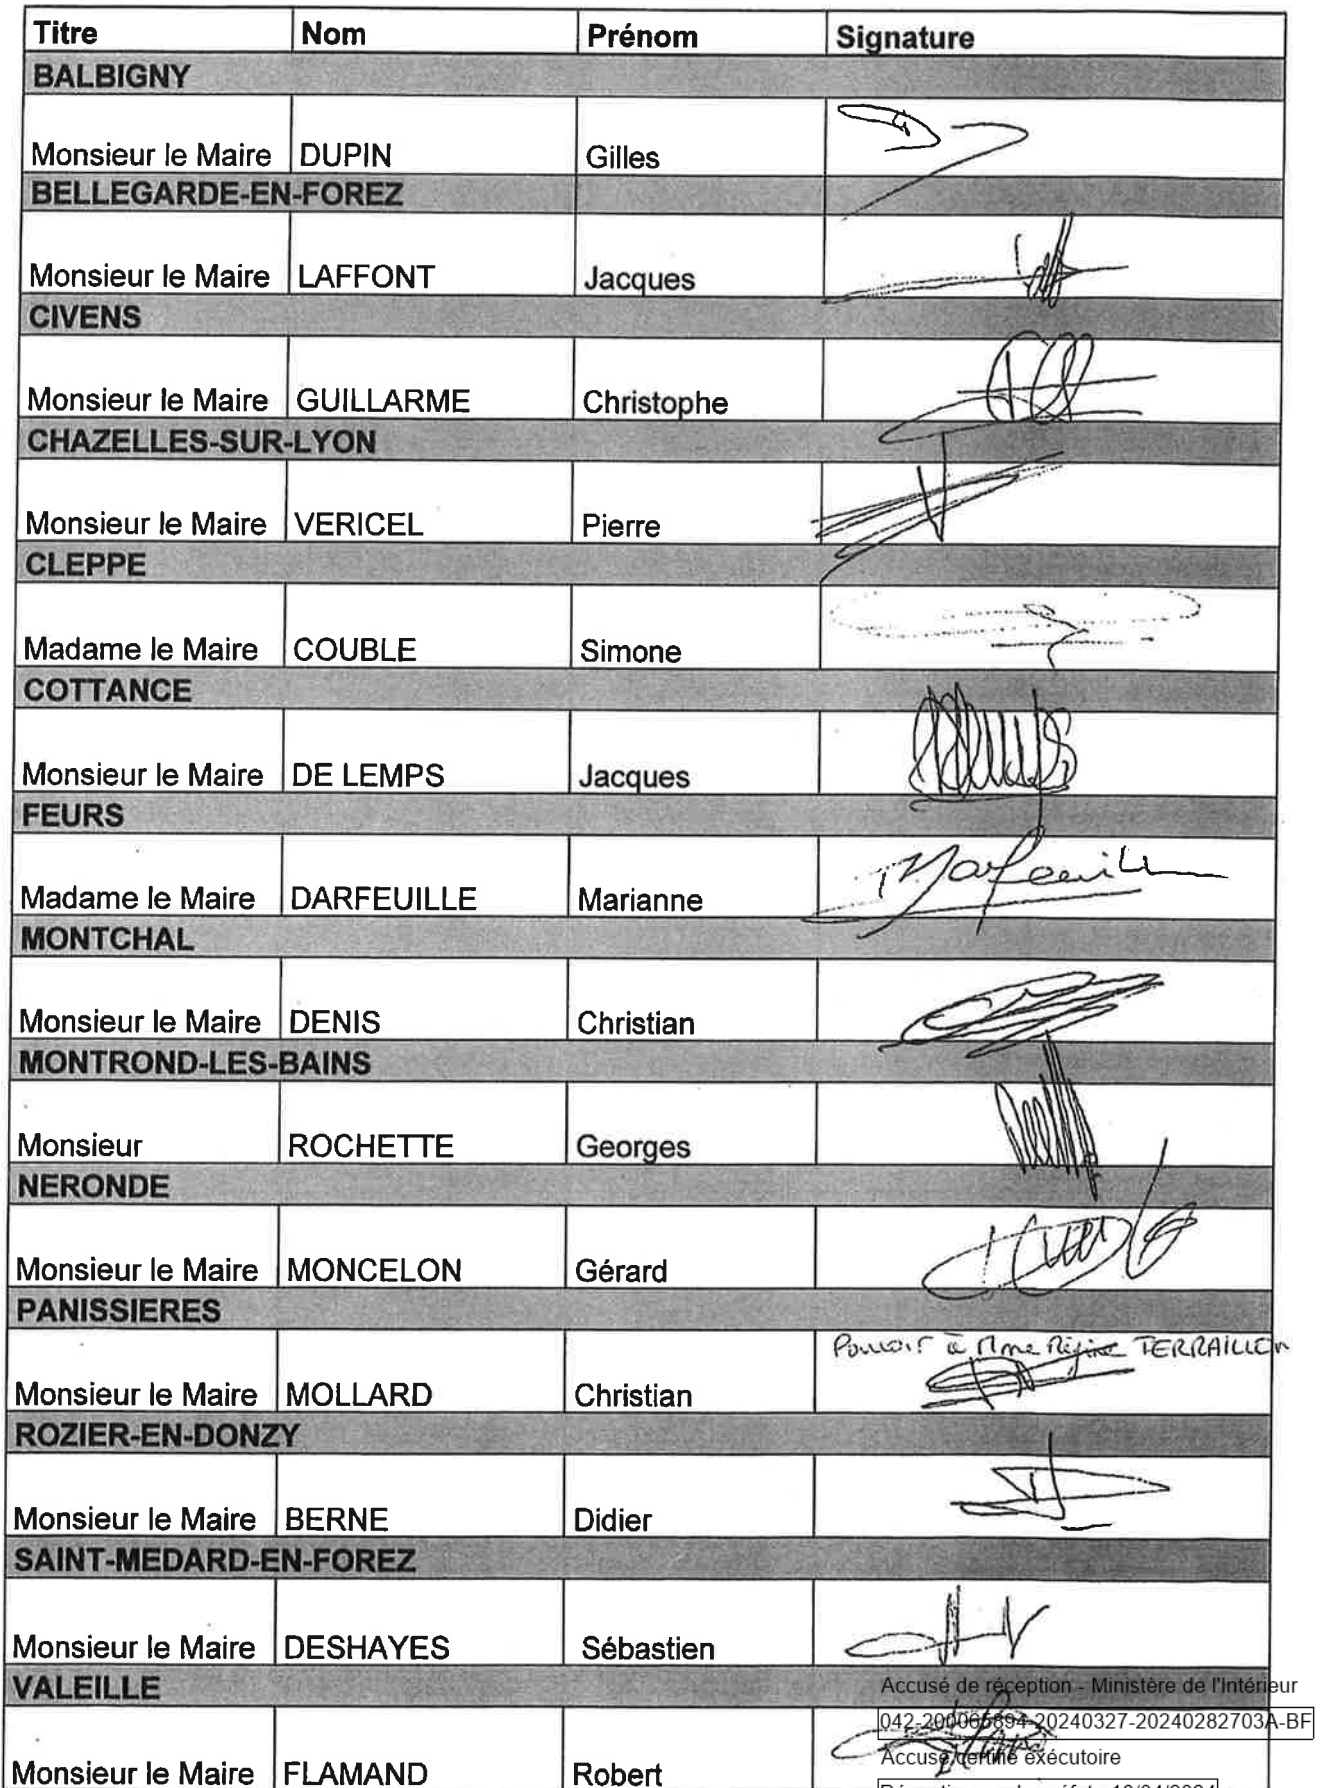 Titre Nom Prénom Signature
BALBIGNY
Monsieur le Maire DUPIN Gilles
BELLEGARDE-EN-FOREZ
Monsieur le Maire LAFFONT Jacques
CIVENS
Monsieur le Maire GUILLARME Christophe
CHAZELLES-SUR-LYON
Monsieur le Maire VERICEL Pierre
CLEPPE
Madame le Maire COUBLE Simone
COTTANCE
Monsieur le Maire DE LEMPS Jacques
FEURS
Madame le Maire DARFEUILLE Marianne
MONTCHAL
Monsieur le Maire DENIS Christian
MONTROND-LES-BAINS
Monsieur ROCHETTE Georges
NERONDE
Monsieur le Maire MONCELON Gérard
PANISSIERES
Pouvoir à Mme Régine TERRAILLON
Monsieur le Maire MOLLARD Christian
ROZIER-EN-DONZY
Monsieur le Maire BERNE Didier
SAINT-MEDARD-EN-FOREZ
Monsieur le Maire DESHAYES Sébastien
VALEILLE
Accusé de réception - Ministère de l'Intérieur
042-200065894-20240327-20240282703A-BF
Accusé certifié exécutoire
Monsieur le Maire FLAMAND Robert